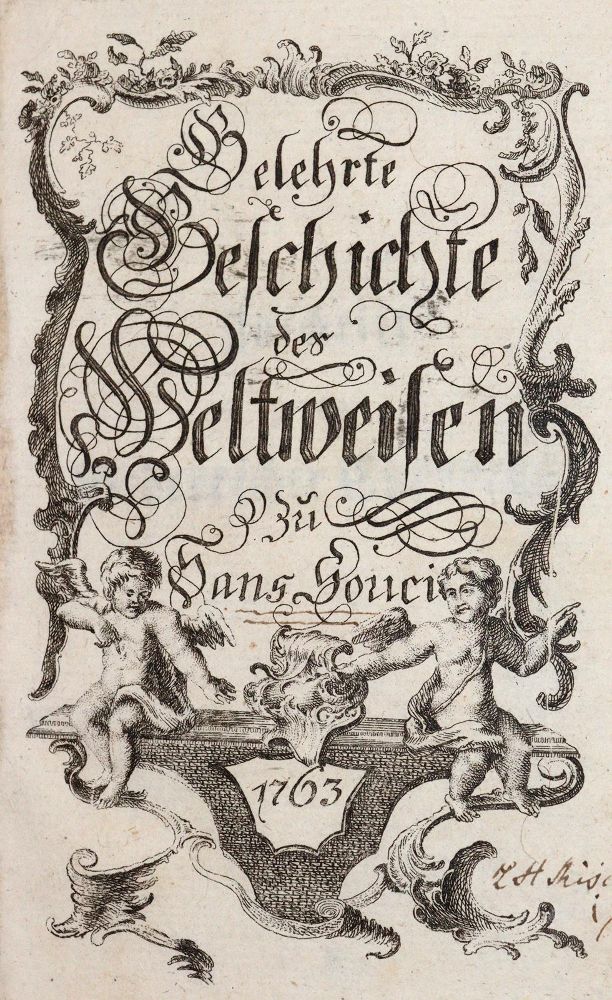 Gelehrte
Geschichte
der
Weltweisen
zu
Sans Souci
1763